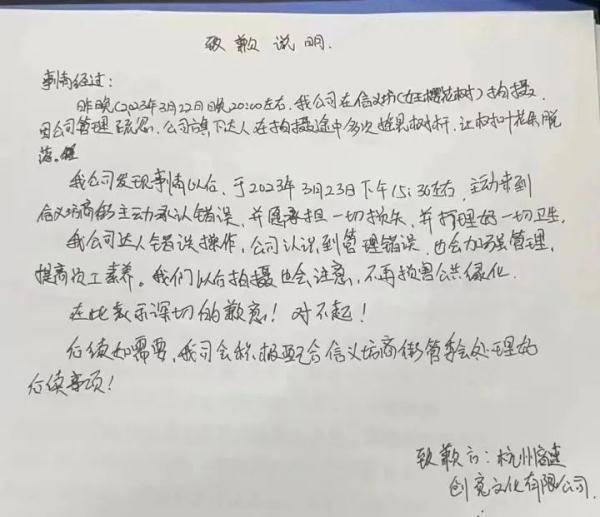 致歉说明.
事情经过:
昨晚(2023年3月22日晚20:00左右.我公司在信义坊(女王樱花树)拍摄.
因公司管理疏忽.公司旗下达人在拍摄途中多次摇晃树杆.让树叶花集脱
落.
我公司发现事情以后.于2023年3月23日下午15:36左右.主动来到
信义坊商街主动承认错误,并愿承担一切损失,并打理好一切卫生.
我公司达人错误操作,公司认识到管理错误.也会加强管理,
提高员工素养。我们以后拍摄也会注意,不再损害公共绿化.
在此表示深切的歉意!对不起!
后续如需要,我司会积极配合信义坊商街管委会处理好
后续事项!
致歉方:杭州
创意文化有限公司.